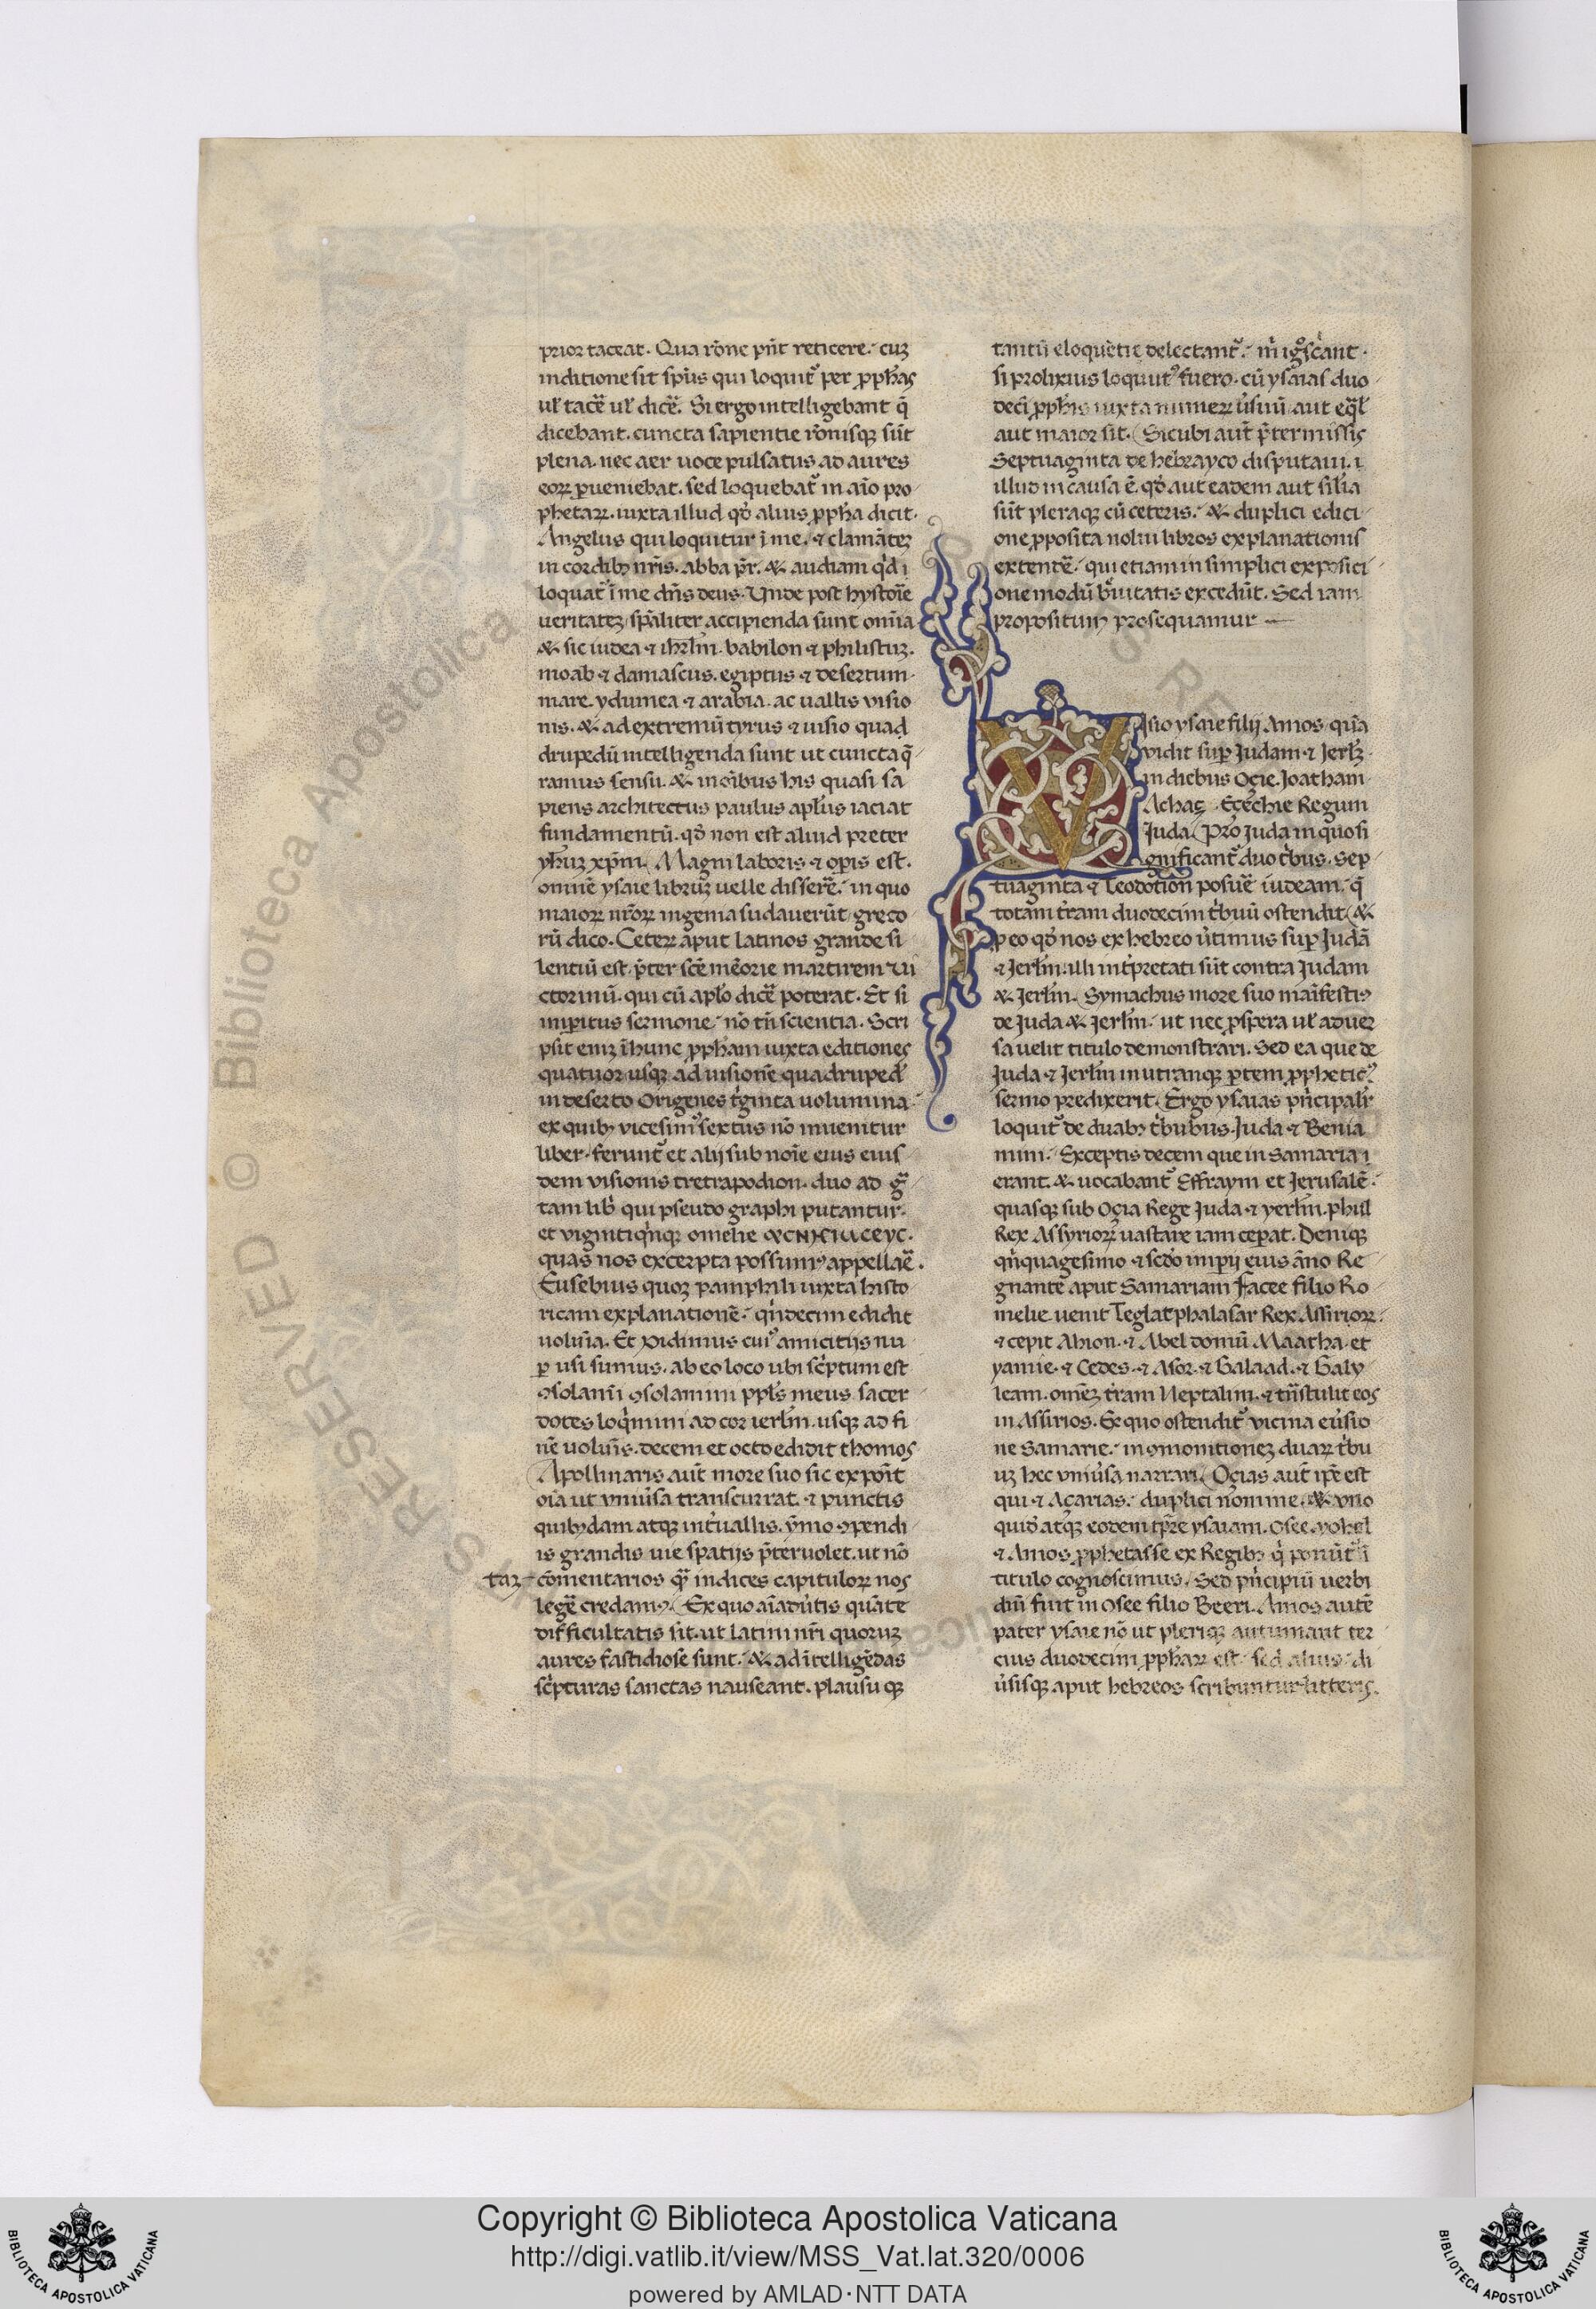 prior taceat. Qua rōne pn̄t reticere. cuȝ
in ditione sit sp̄us qui loquit᷑ per ꝓph̄as
ul̄ tacē᷑ ul̄ dicē᷑. Si ergo intelligebant q̄
dicebant. cuncta sapientie rōnisqꝫ sūt
plena. nec aer uoce pulsatus ad aures
eorꝝ ꝑueniebat. sed loquebat᷑ in aīo pro
phetarꝝ. iuxta illud qđ alius ꝓph̄a dicit.
Angelus qui loquitur ī me. & clamātez
in cordibꝫ nr̄is. abba pr̄. & audiam qđ ī
loquat᷑ ī me dn̄s deus. Unde post hystorīe
ueritatez sp̄aliter accipienda sunt om̄ia
& sic iudea & ihrl̄m. babilon & philistuȝ.
moab & damascus. egiptus & desertum
mare. ydumea & arabia. ac uallis visio
nis. & ad extremū tyrus & uisio quad
drupedū intelligenda sunt ut cuncta q̄
ramus sensu. & in oībus his quasi sa
piens architectus paulus apl̄us iaciat
fundamentū. qđ non est aliud preter
yh̄uȝ xp̄m. Magni laboris & opis est.
omnē ysaie librūȝ uelle disserē᷑. in quo
maiorꝝ nr̄orꝝ ingenia sudauerūt greco
rū dico. Ceterꝝ aput latinos grande si
lentiū est. p̄ter scē mēorie martirem Vi
ctorinū. qui cū apl̄o dicē᷑ poterat. Et si
imꝑitus sermone. nō tn̄ scientia. Scri
psit eniȝ ī hunc ꝓpham iuxta editiones
quatuor usqꝫ ad uisionē quadruped̄
in deserto Origenes t̄ginta uolumina
ex quibꝫ vicesimꝰ sextus nō inuenitur
liber. ferunt᷑ et alij sub noīe eius eius
dem visionis tretrapodion. duo ad g᷑
tam lib᷑ qui pseudo graphi putantur.
et viginti qn̄qꝫ omelie
quas nos excerpta possumꝰ appellaē᷑.
Eusebius quoqȝ pamphili iuxta histo
ricam explanationē. qn̄decim edidit
uolum̄ia. Et Didimus cuiꝰ amicitijs nu
ꝑ usi sumus. ab eo loco ubi sc̄ptum est
ꝯsolanīī ꝯsolamini ppl̄s meus. sacer
dotes loq̄mini ad cor ierl̄m. usqꝫ ad fi
nē uolum̄is. decem et octo edidit thomos
Apollinaris aut̄ more suo sic expōit
oīa ut uniūsa transcurrat. & punctis
quibꝫdam atqꝫ int̄uallis. ȳmo ꝯpendi
is grandis uie spatijs p̄teruolet. ut nō
taȝ cōmentarios q᷑ indices capitulorꝝ nos
legē᷑ credamꝰ. Ex quo aīadūtis quāte
difficultatis sīt. ut latini nr̄i quoruȝ
aures fastidiose sunt. & ad ītelligēdas
sc̄pturas sanctas nauseant. plausu qꝫ
tantū eloquētie delectant᷑. m̄ igosc̄ant
si prolixius loqutꝰ fuero. cū ysaias duo
decī ꝓph̄is iuxta numerꝝ ūsuū aut eq̄l̄
aut maior sit. Sicubi aut̄ p̄termissis
Septuaginta de hebrayco disputaui. ī
illud in causa ē. qđ aut eadem aut sil̄ia
sūt pleraqꝫ cū ceteris. & duplici edici
one ꝓposita nolui libros explanationis
extentē᷑. qui etiam in simplici exposici
one modū b᷑uitatis excedūt. Sed iam
propositum prosequamur
Visio ysaie filij Amos. quā
vidit suꝑ Judam & Jerlz̄
in diebus Ozie. Joatham
Achaz. Ezechie Regum
Juda. Pro Juda in quo si
gnificant᷑ duo t̄bus. Sep
tuaginta & Teodotion posuē᷑ iudeam. q̄
totam t̄ram duodecim t̄buū ostendit. &
ꝑ eo qđ nos ex hebreo ūtimus suꝑ Judā
& Jerl̄m. illi int̄pretati sūt contra Judam
& Jerl̄m. Symachus more suo maīfestiꝰ
de Juda & Jerl̄m. ut nec ꝓspera ul̄ aduer
sa uelit titulo demonstrari. Sed ea que de
Juda & Jerl̄m in utranqꝫ ꝑtem ꝓpheticꝰ
sermo predixerit. Ergo ysaias pn̄cipalr̄
loquit᷑ de duabꝫ t̄bubus. Juda & Benia
min. Exceptis decem que in Samaria ī
erant. & uocabant᷑ Effraym et Jerusalē.
quasqꝫ sub Ozia Rege Juda & yerl̄m. phul
Rex Assyriorꝝ uastare iam ceꝑat. Deniqꝫ
qn̄quagesimo & scđo imꝑij eius āno Re
gnante aput Samariam Facee filio Ro
melie uenit Teglatphalasar Rex Assiriorꝝ.
& cepit Ahion. & Abel domū Maacha. et
yanie. & Cedes. & Asor. & Galaad. & Galy
leam. omēȝ t̄ram Neptalim. & tn̄stulit eos
in Assirios. Ex quo ostendit᷑ vicina eūsio
ne Samarie. in ꝯmonitionez duarꝝ t̄bu
uȝ hec uniūsa narrari. Ozias aut̄ ip̄e est
qui & Azarias. duplici nomine. & uno
quid atqꝫ eodem tp̄re ysaiam. Osee. yohel
& Amos ꝓphetasse ex Regibꝫ q̄ ponūt᷑ ī
titulo cognoscimus. Sed pn̄cipiū uerbi
dn̄i fuit in Osee filio Beeri. Amos autē
pater ysaie nō ut pleriqꝫ autumant ter
cius duodecim ꝓph̄arꝝ est. sed alius. di
ūsisqꝫ aput hebreos scribuntur litteris.
BIBLIOTECA APOSTOLICA VATICANA
Copyright © Biblioteca Apostolica Vaticana
http://digi.vatlib.it/view/MSS_Vat.lat.320/0006
powered by AMLAD·NTT DATA
BIBLIOTECA APOSTOLICA VATICANA